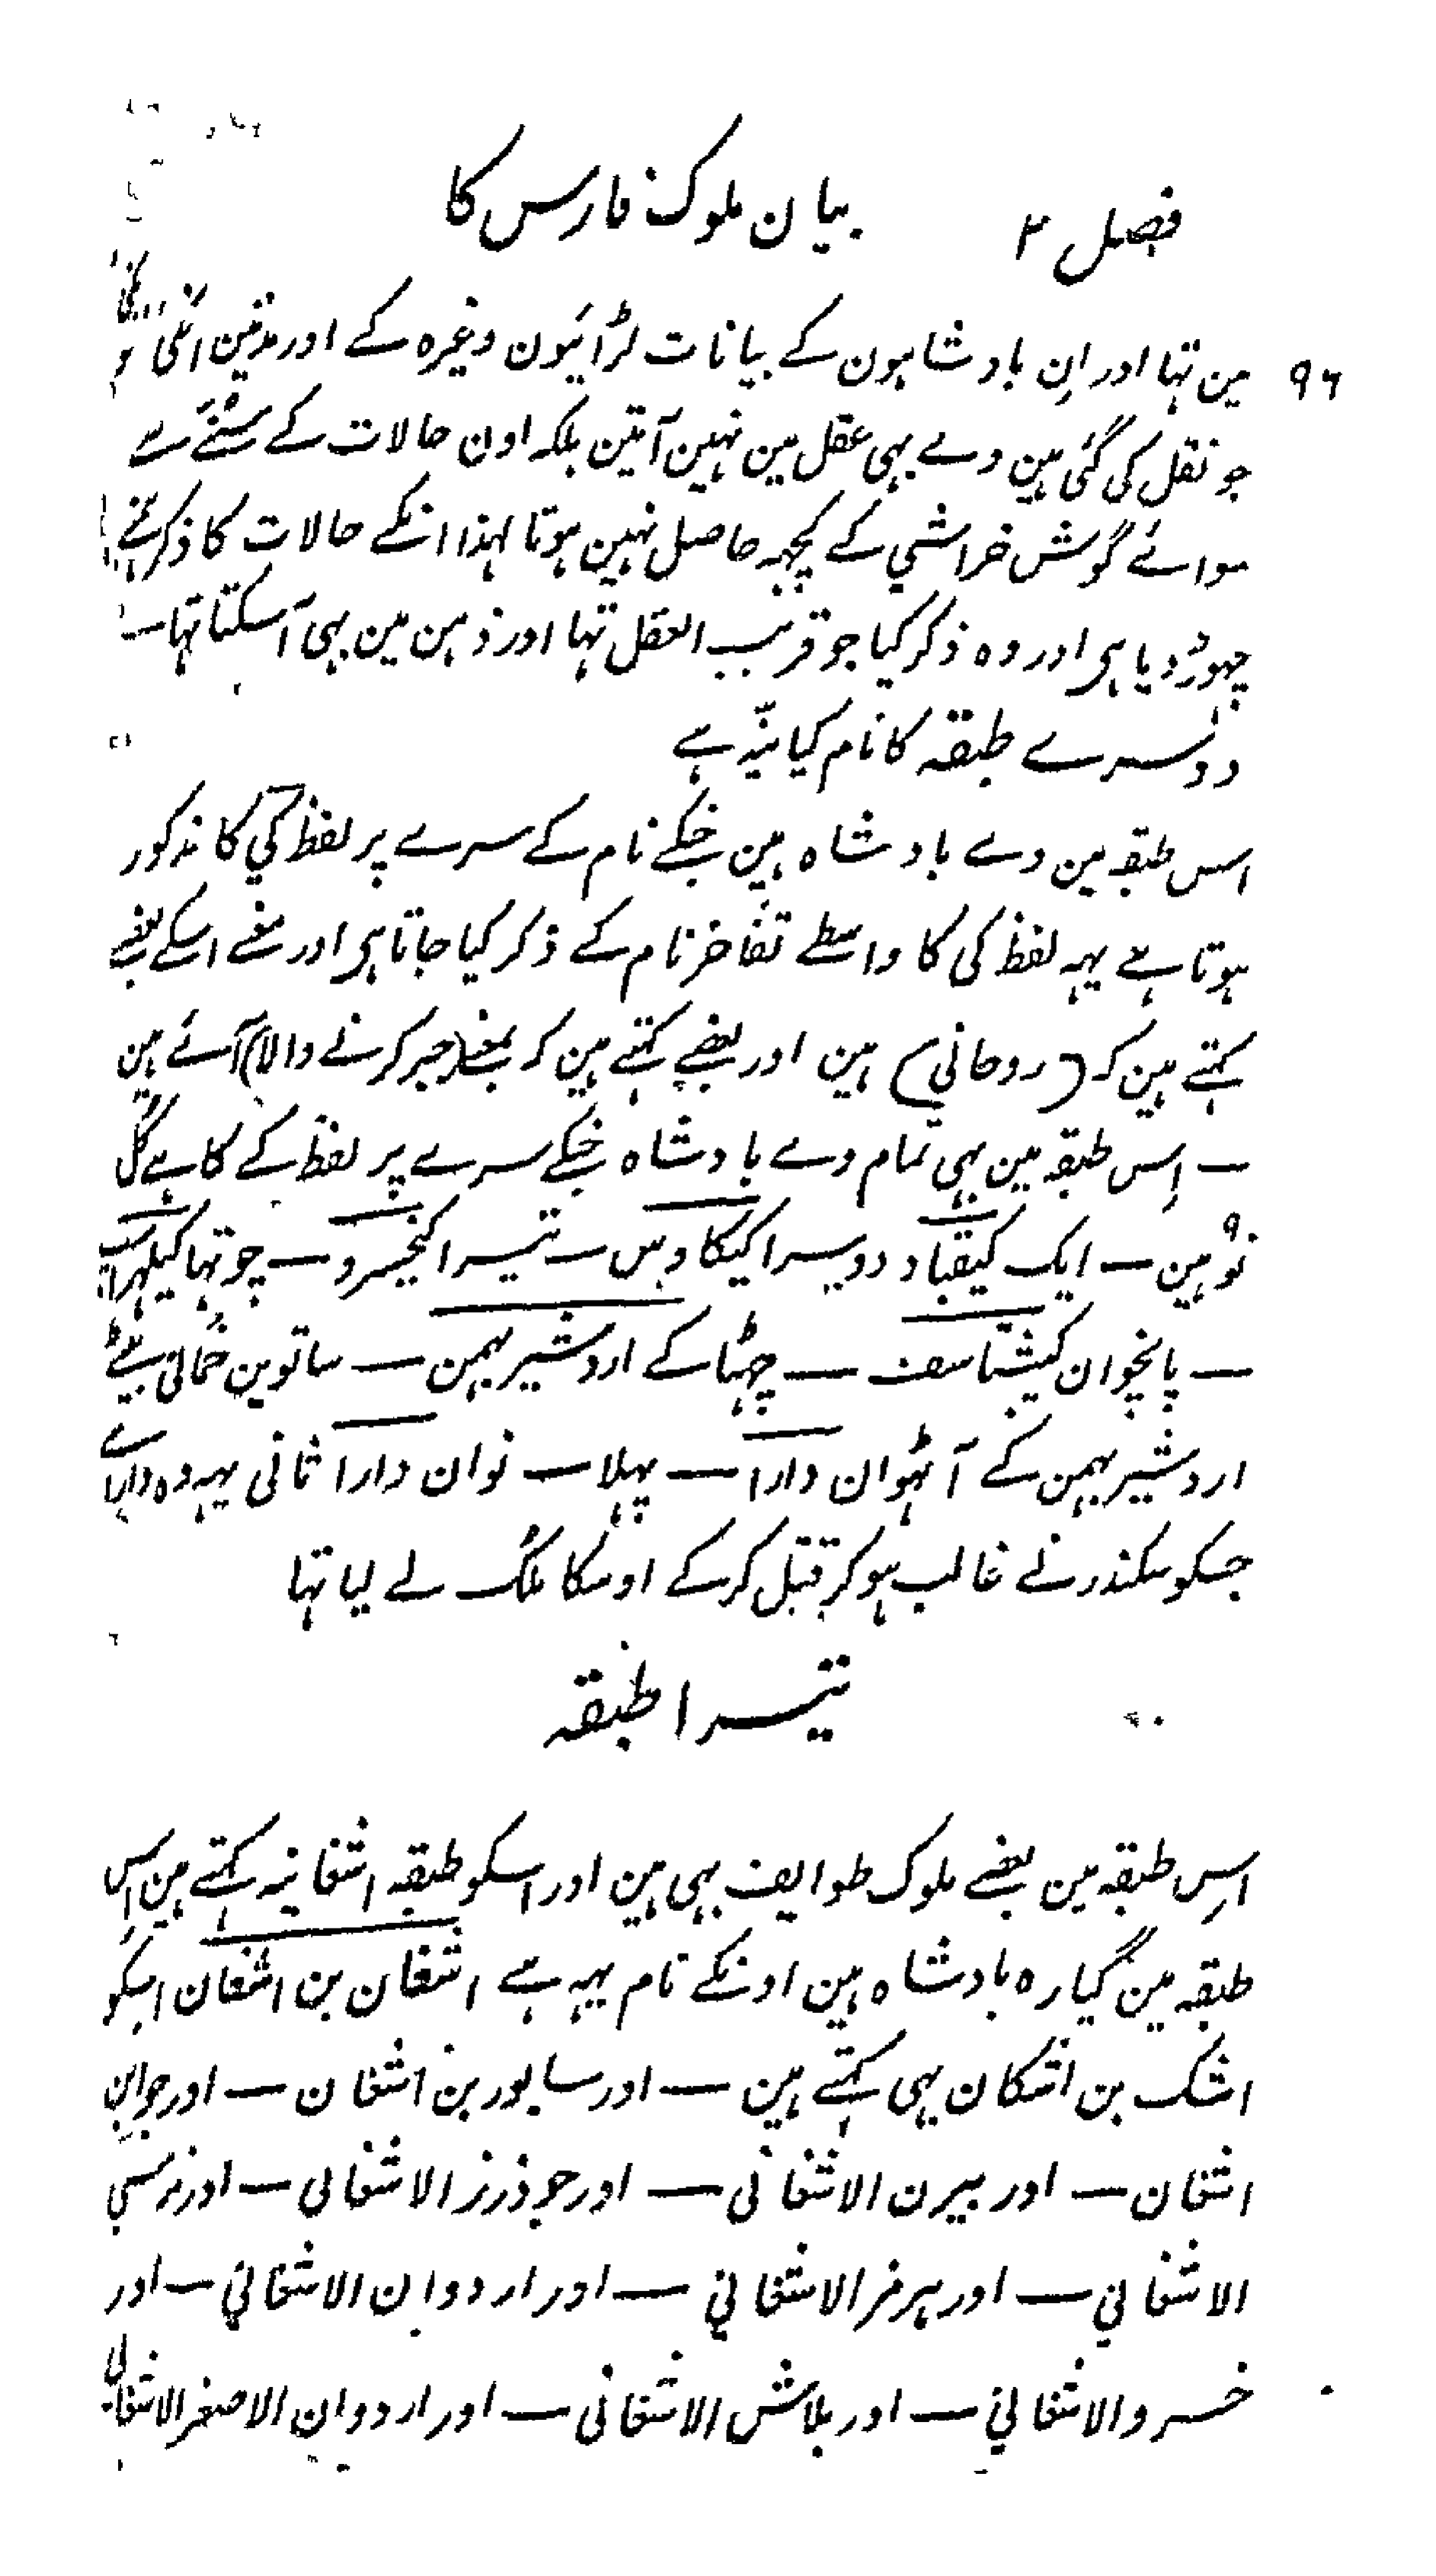 فصل ۲ بیان ملوک فارس کا
۹۶ مین تہا اور اِن بادشاہون کے بیانات لڑائیون وغیرہ کے اور مدتین انکی
جو نقل کی گئی ہین وے بہی عقل مین نہین آتین بلکہ اون حالات کے سُننے سے
سوائے گوش خراشي کے کچہہ حاصل نہین ہوتا لہذا انکے حالات کا ذکر ہمنے
چہوڑ دیا ہی اور وہ ذکر کیا جو قریب العقل تہا اور ذہن مین بہی آ سکتا تہا —
دوسرے طبقہ کا نام کیانیّہ ہے
اس طبقہ مین وے بادشاہ ہین جنکے نام کے سرے پر لفظ کَي کا مذکور
ہوتا ہے یہہ لفظ کی کا واسطے تفاخر نام کے ذکر کیا جاتا ہی اور معنے اسکے بعضے
کہتے ہین کہ (روحاني) ہین اور بعضے کہتے ہین کہ بمعنے (جبر کرنے والا) آئے ہین
— اِس طبقہ مین بہی تمام وے بادشاہ جنکے سرے پر لفظ کے کا ہے کُل
نَو ۹ ہین — ایک کیقباد دوسرا کیکاوس — تیسرا کیخسرو — چوتہا کیلہراسب
— پانچوان کیشتاسف — چہٹا کے اردشیر بہمن — ساتوین خُمانی بیٹے
اردشیر بہمن کے آٹہوان دارا — پہلا — نوان دارا ثانی یہہ وہ دارا ہے
جسکو سکندر نے غالب ہو کر قتل کرکے اوسکا مُلک لے لیا تہا
تیسرا طبقہ
اِس طبقہ مین بعضے ملوک طوایف بہی ہین اور اسکو طبقہ اشغانیہ کہتے ہین اِس
طبقہ مین گیارہ بادشاہ ہین اونکے نام یہہ ہے اشغان بن اشغان اسکو
اشک بن اشکان بہی کہتے ہین — اور سابور بن اشغان — اور جو بن
اشغان — اور بیرن الاشغانی — اور جوذرز الاشغانی — اور نرسي
الاشغاني — اور ہرمز الاشغاني — اور اردوان الاشغاني — اور
خسرو الاشغاني — اور بلاش الاشغانی — اور اردوان الاصغر الاشغانی